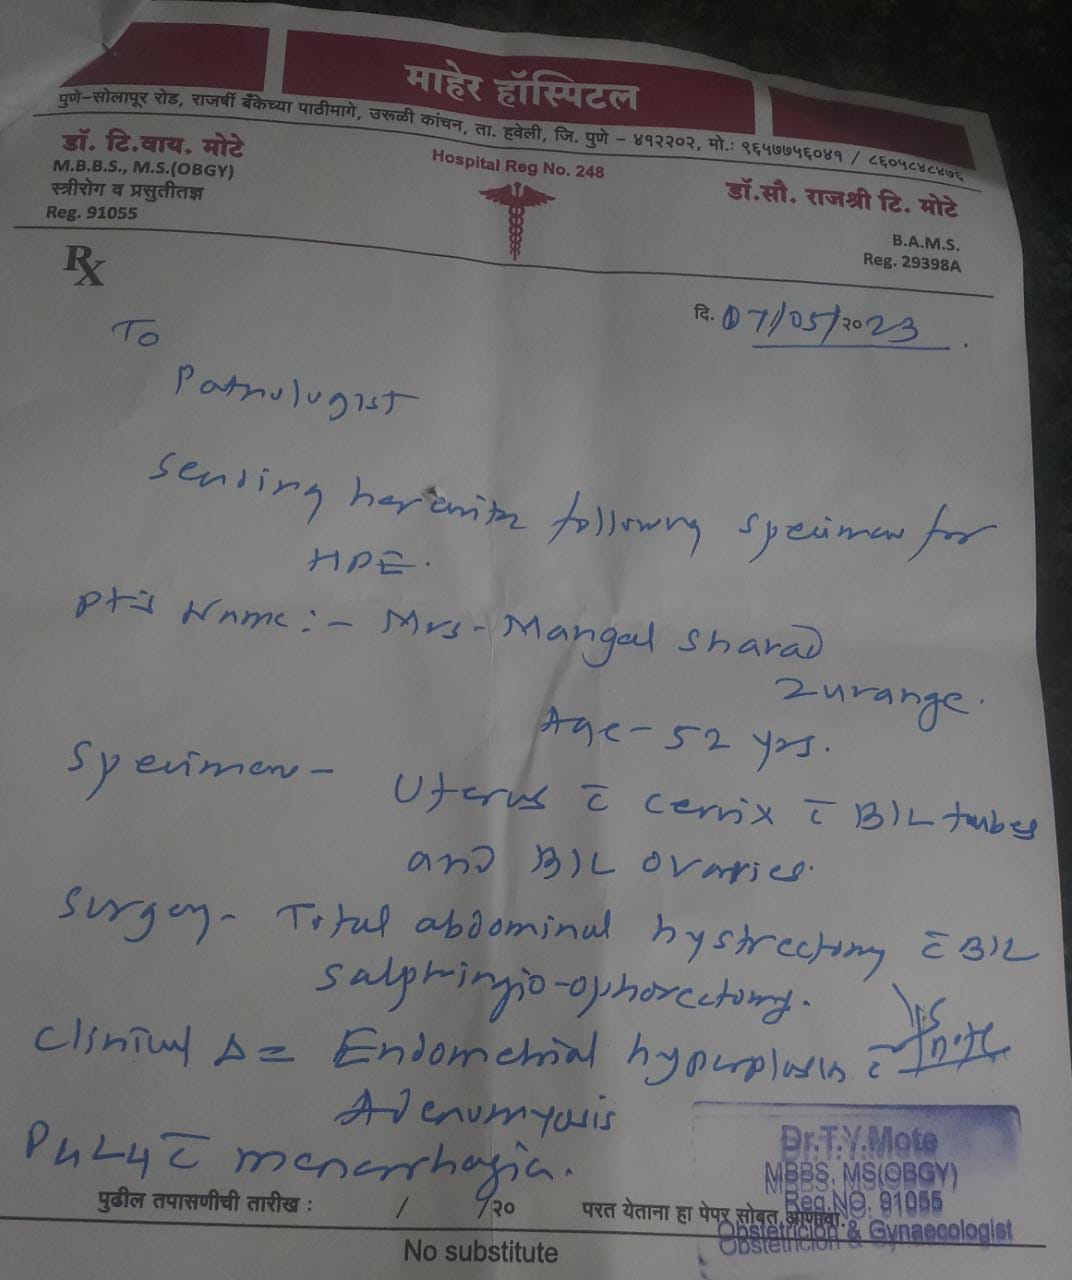 माहेर हॉस्पिटल
पुणे-सोलापूर रोड, राजर्षी बँकेच्या पाठीमागे, उरूळी कांचन, ता. हवेली, जि. पुणे - ४१२२०२, मो.: ९६५७७५६०४१ / ८६०५८४८४७६
डॉ. टि.वाय. मोटे
M.B.B.S., M.S.(OBGY)
स्त्रीरोग व प्रसुतीतज्ञ
Reg. 91055
Hospital Reg No. 248
डॉ.सौ. राजश्री टि. मोटे
B.A.M.S.
Reg. 29398A
Rx
दि. 07/05/२०23
To
Pathologist
Sending herewith following specimen for
HPE.
Pt's Name:- Mrs- Mangal Sharad
Zurange.
Age- 52 yrs.
Specimen- Uterus c̄ cervix c̄ B/L tubes
and B/L ovaries.
Surgery- Total abdominal hystrectomy c̄ B/L
Salphingio-ophorectomy.
Clinical Δ = Endometrial hyperplasia c̄
Adenomyosis
P4L4 c̄ menorrhagia.
Dr.T.Y.Mote
MBBS, MS(OBGY)
Reg.NO. 91055
Obstetricion & Gynaecologist
पुढील तपासणीची तारीख : / /२०
परत येताना हा पेपर सोबत आणावा.
No substitute